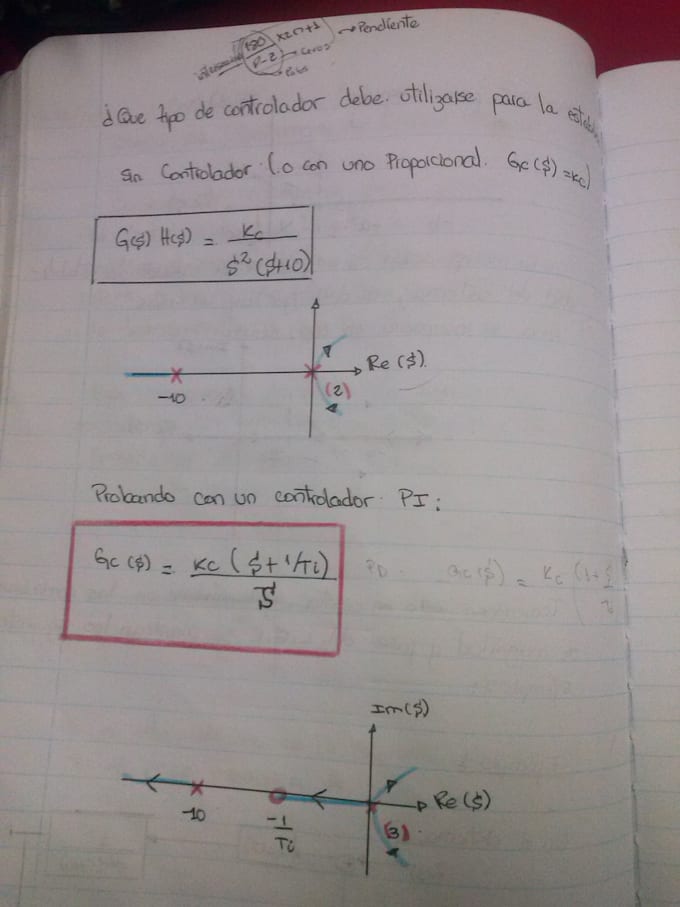 180 x2n+1 → Pendiente
P-Z → Ceros
→ Polos
¿Que tipo de controlador debe utilizarse para la
Sin Controlador (o con uno Proporcional. Gc($)=Kc)
G($) H($) = Kc
$² ($+10)
Re($).
-10
(2)
Probando con un controlador PI:
Gc($) = Kc ($ + 1/Ti)
$
PD. Gc($) = Kc (1+ $
Im($)
Re($)
-10
-1
Ti
(3)